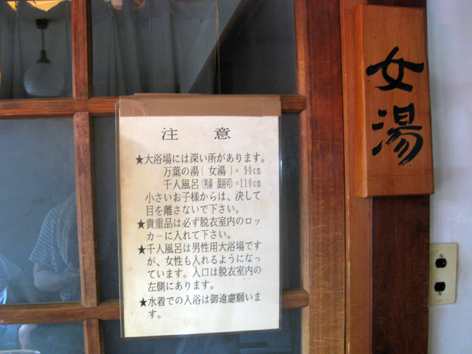 注意
★大浴場には深い所があります。
万葉の湯(女湯)=90cm
千人風呂(男湯 混浴可)=110cm
小さいお子様からは、決して
目を離さないで下さい。
★貴重品は必ず脱衣室内のロッ
カーに入れて下さい。
★千人風呂は男性用大浴場です
が、女性も入れるようになっ
ています。入口は脱衣室内の
左側にあります。
★水着での入浴は御遠慮願いま
す。
女湯